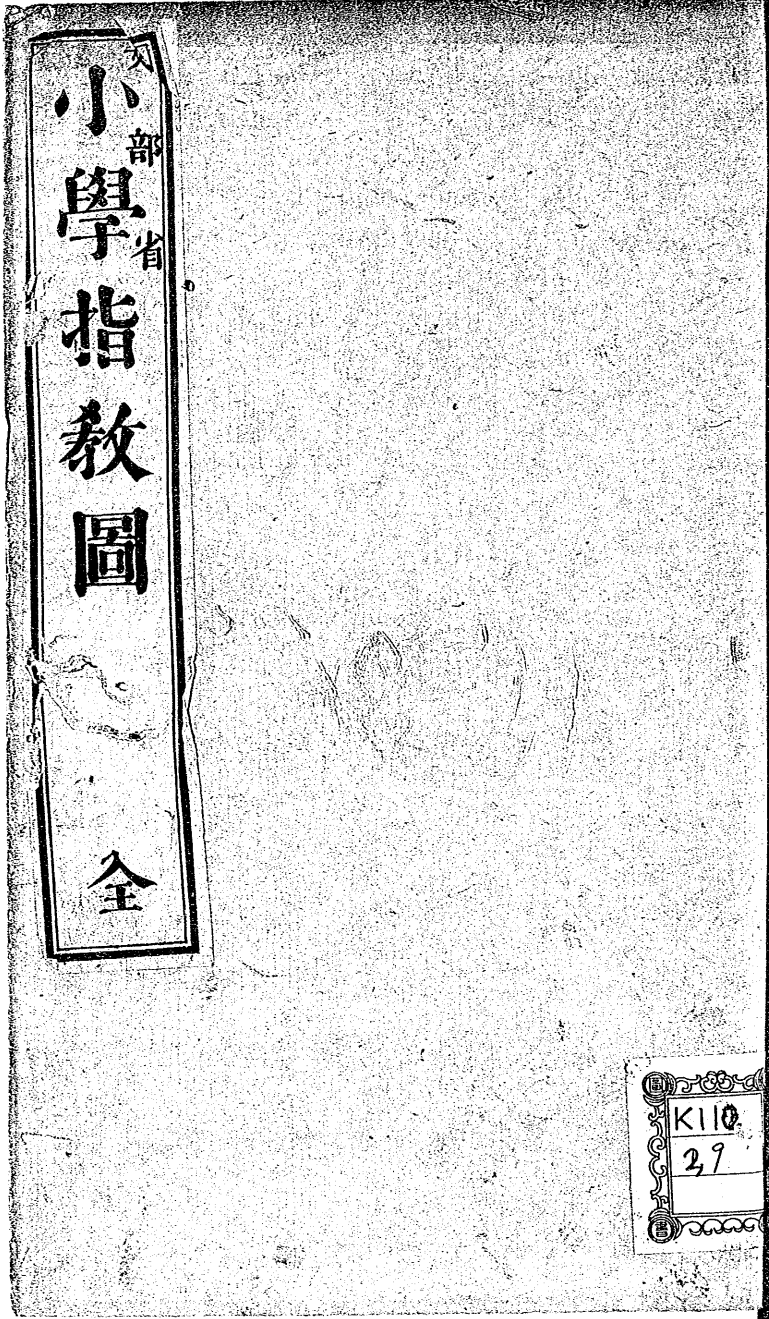 文部省
小學指教圖 全
K110
29
圖
書